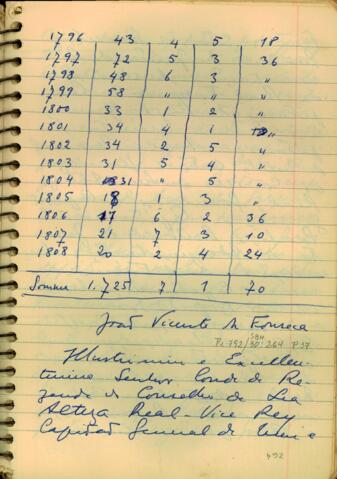 1796 43 4 5 18
1797 72 5 3 36
1798 48 6 3 "
1799 58 " " "
1800 33 1 2 "
1801 34 4 1 "
1802 34 2 5 "
1803 31 5 4 "
1804 31 " 5 "
1805 18 1 3 "
1806 17 6 2 36
1807 21 7 3 10
1808 20 2 4 24
Somma 1.725 7 1 70
João Vicente da Fonseca
Illustrissimo e Excellen-
tissimo Senhor Conde de Re-
zende do Conselho de Sua
Alteza Real - Vice Rey
Capitão General de